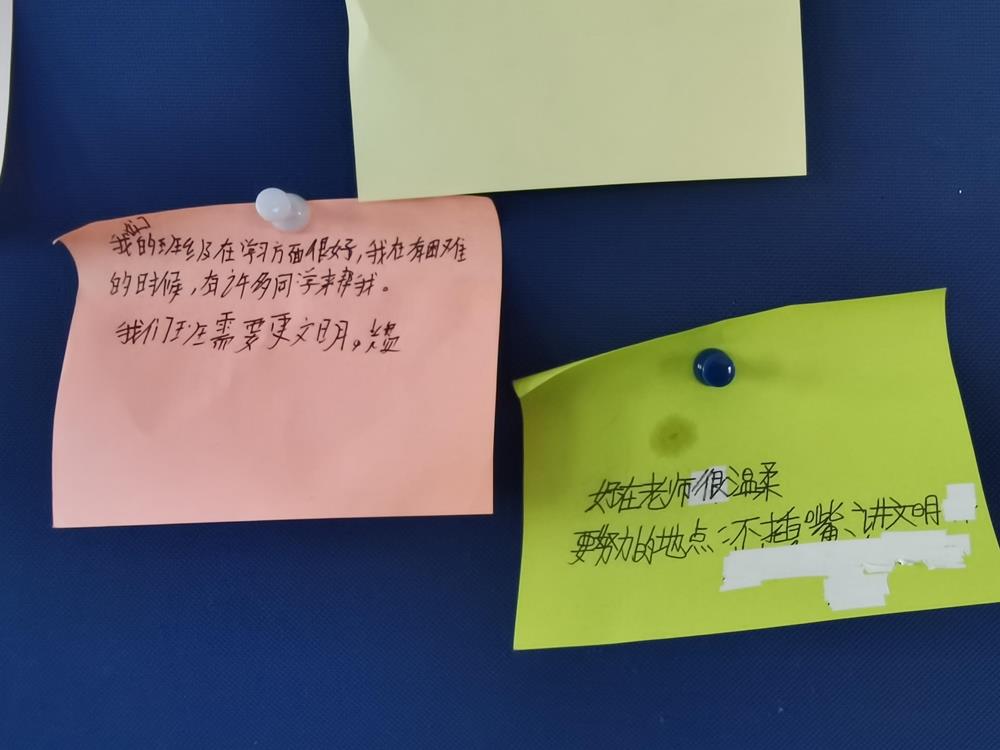 我们的班级在学习方面很好，我在有困难
的时候，有许多同学来帮我。
我们班需要更文明。
好在老师很温柔
要努力的地点：不插嘴、讲文明